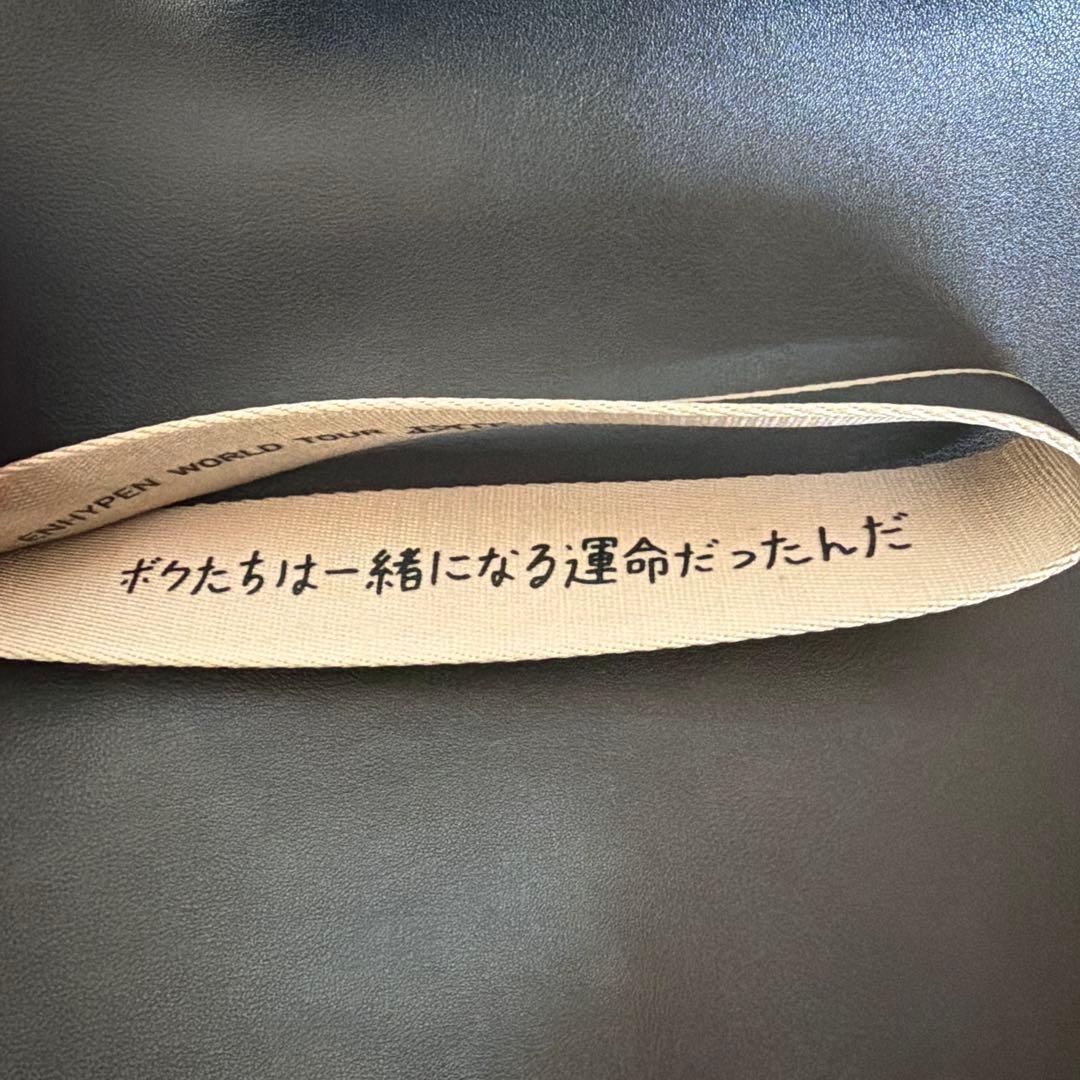 ENHYPEN WORLD TOUR
ボクたちは一緒になる運命だったんだ